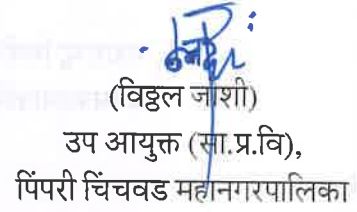 (विठ्ठल जोशी)
उप आयुक्त (सा.प्र.वि),
पिंपरी चिंचवड महानगरपालिका